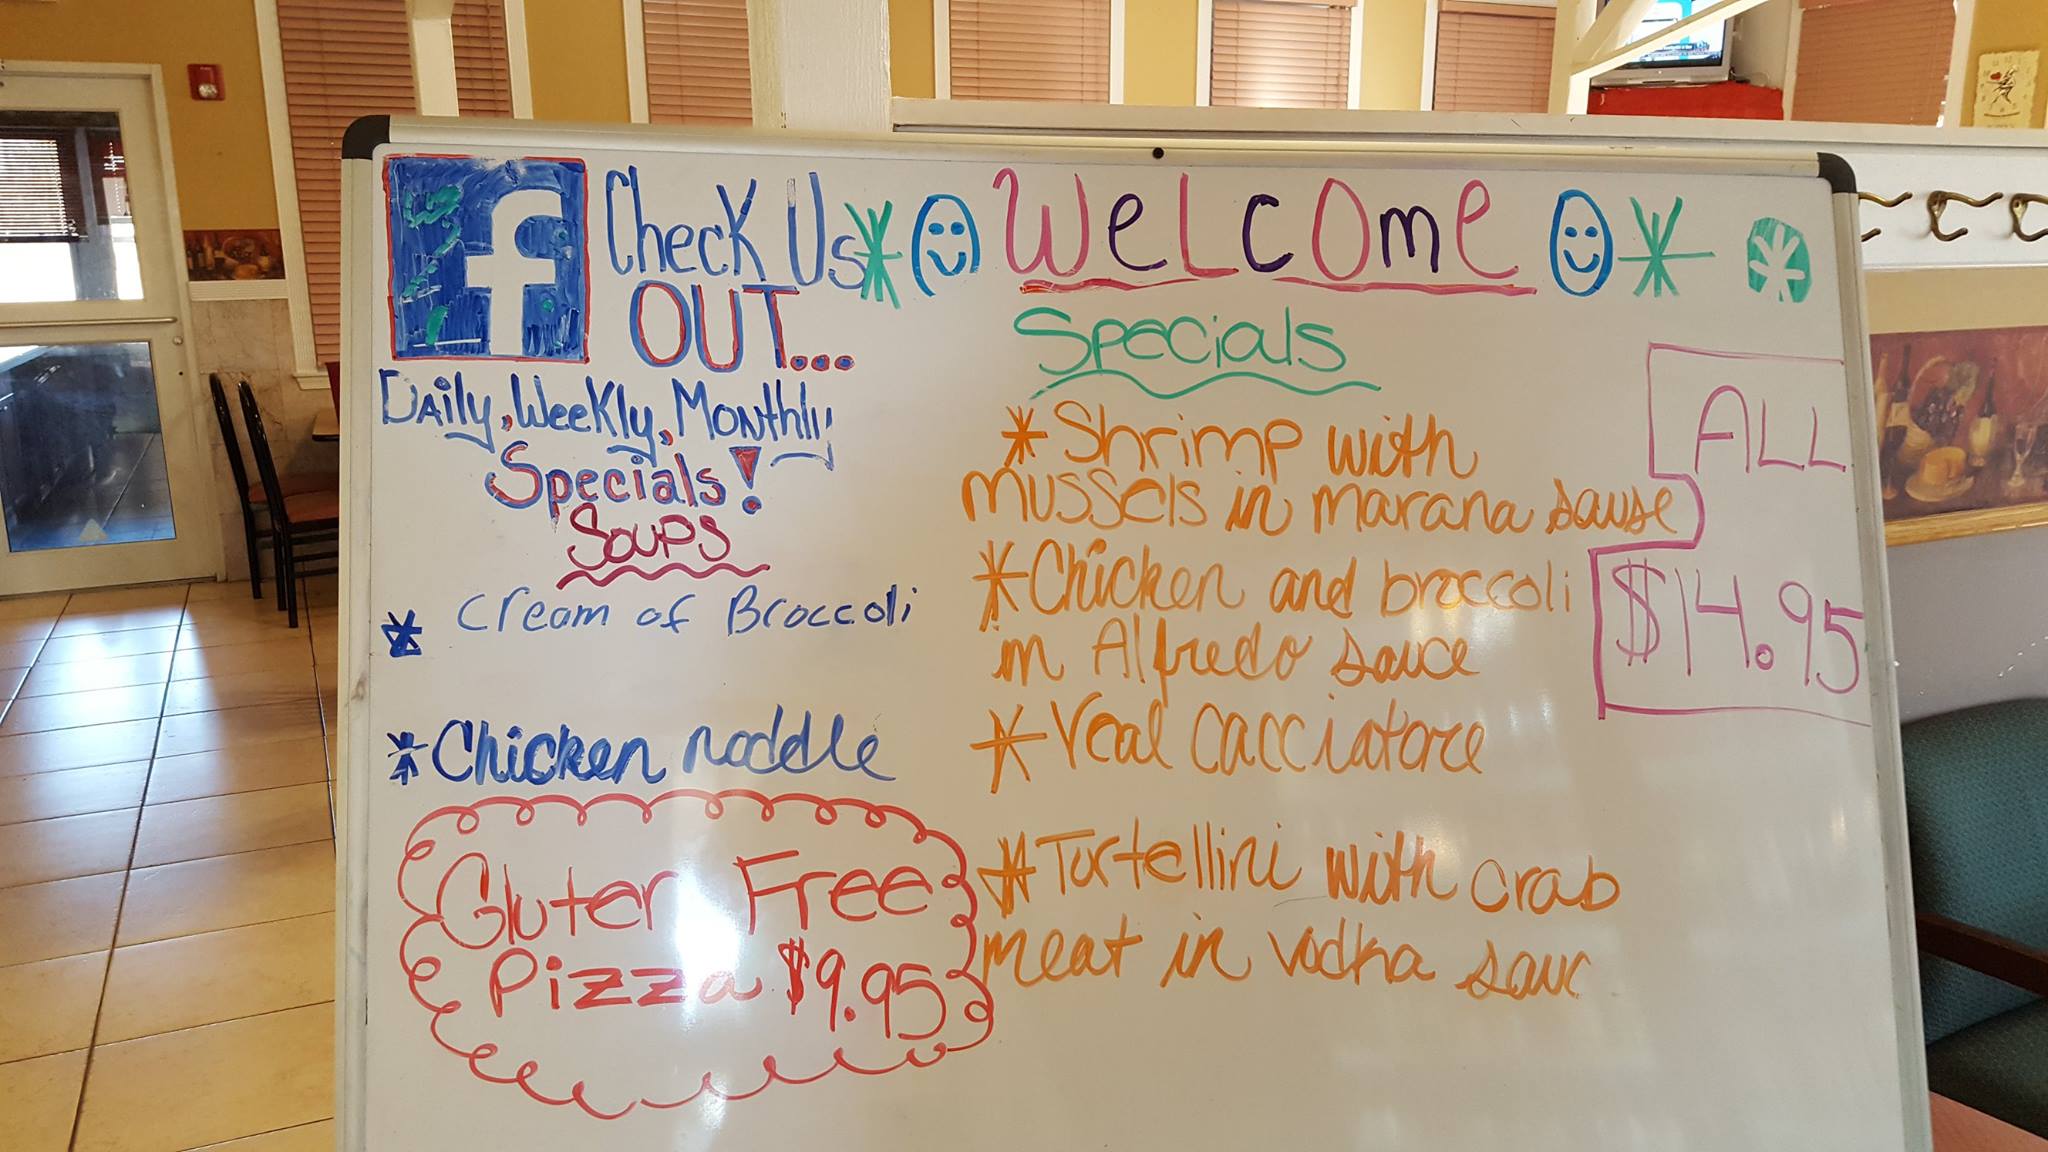 f Check Us
OUT...
Daily, Weekly, Monthly
Specials!
Soups
* Cream of Broccoli
* Chicken noddle
Gluten Free
Pizza $9.95
WeLcOme
Specials
* Shrimp with
mussels in marana sause
* Chicken and broccoli
in Alfredo sauce
* Veal cacciatore
* Tortellini with crab
meat in vodka sauc
ALL
$14.95